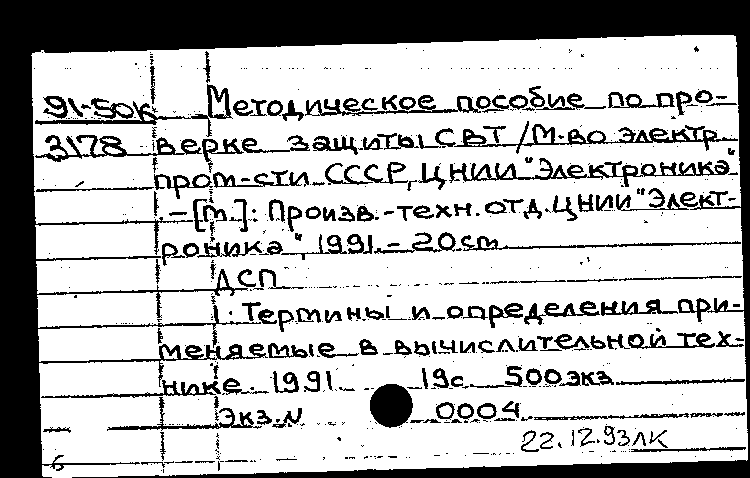 91-50к Методическое пособие по про-
3178 верке защиты СВТ /М-во электр.
пром-сти СССР, ЦНИИ "Электроника"
.-[М.]: Произв.-техн.отд.ЦНИИ "Элект-
роника", 1991.- 20см.
ДСП
1: Термины и определения при-
меняемые в вычислительной тех-
нике. 1991. 19с. 500экз.
Экз.N 0004
22.12.93ЛК
6